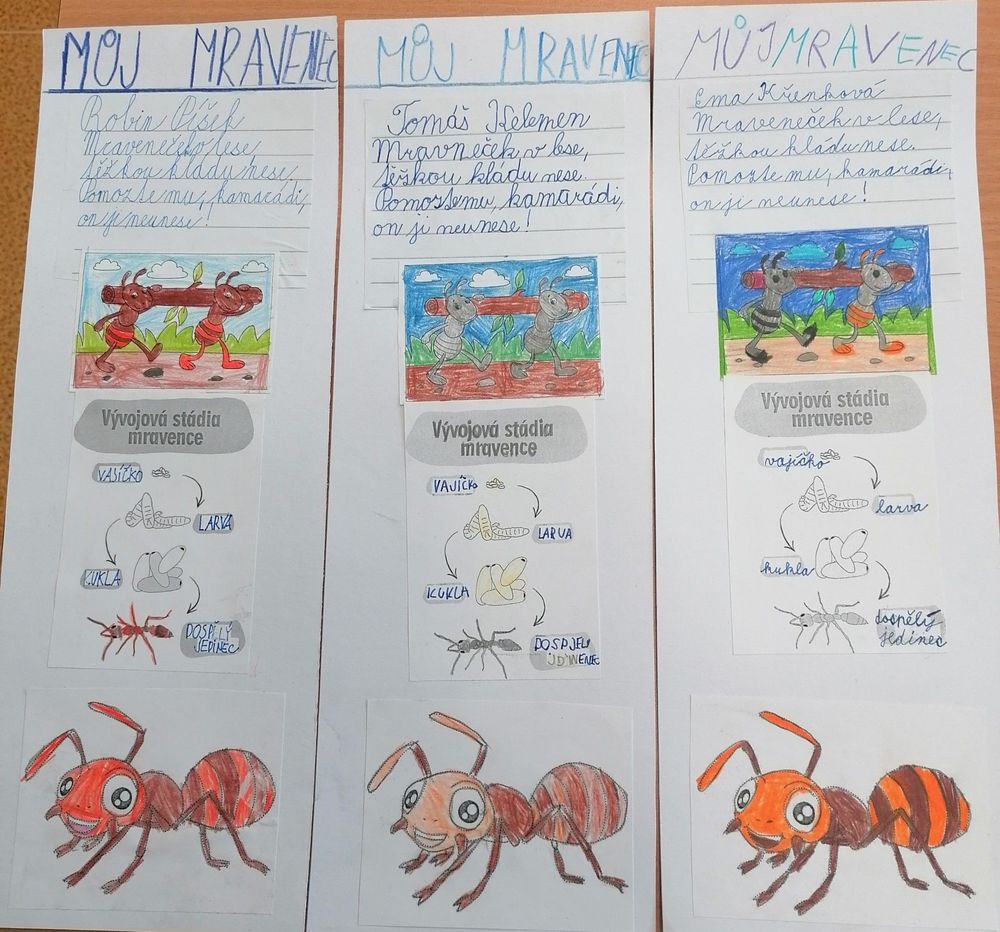 MŮJ MRAVENEC
Robin Píšek
Mraveneček v lese,
těžkou kládu nese,
Pomozte mu, kamarádi,
on ji neunese!
Vývojová stádia
mravence
VAJÍČKO
LARVA
KUKLA
DOSPĚLÝ
JEDINEC
MŮJ MRAVENEC
Tomáš Kelemen
Mravneček v lese,
těžkou kládu nese.
Pomozte mu, kamarádi,
on ji neunese!
Vývojová stádia
mravence
VAJÍČKO
LARVA
KUKLA
DOSPJELI
MŮJ MRAVENEC
Ema Křenková
Mraveneček v lese,
těžkou kládu nese.
Pomozte mu, kamarádi,
on ji neunese!
Vývojová stádia
mravence
vajíčko
larva
kukla
dospělý
jedinec